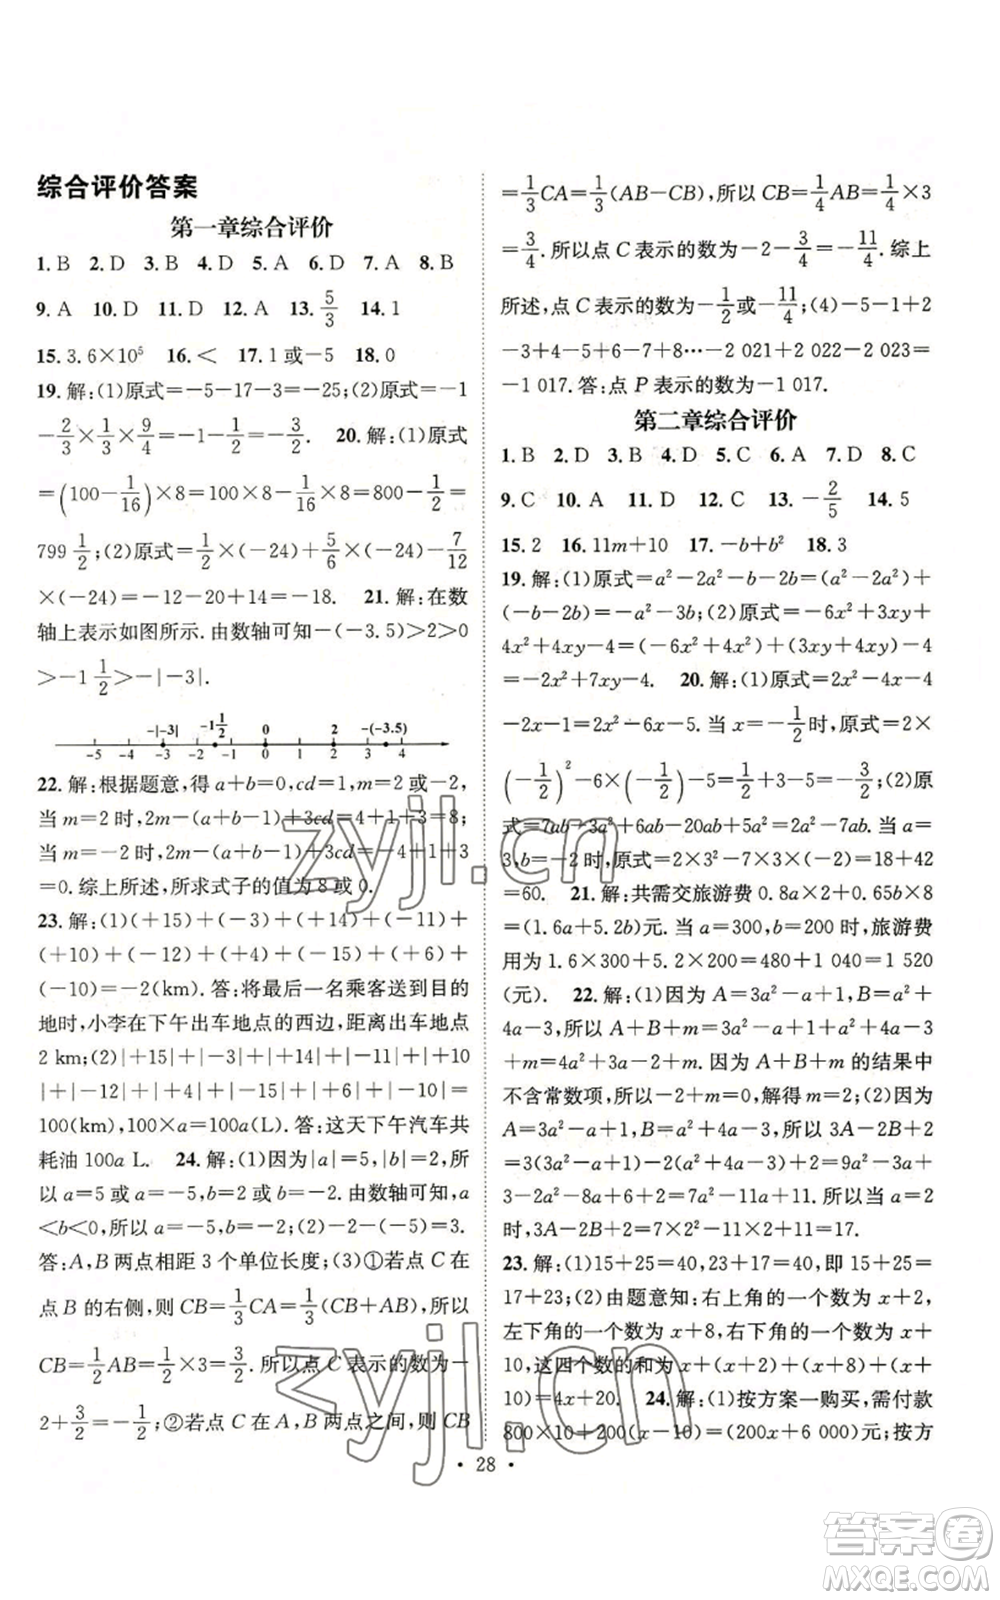 综合评价答案
第一章综合评价
1. B 2. D 3. B 4. D 5. A 6. D 7. A 8. B
9. A 10. D 11. D 12. A 13. 5/3 14. 1
15. 3.6×10⁵ 16. < 17. 1 或-5 18. 0
19. 解:(1)原式=-5-17-3=-25;(2)原式=-1
-2/3×1/3×9/4=-1-1/2=-3/2. 20. 解:(1)原式
=(100-1/16)×8=100×8-1/16×8=800-1/2=
799 1/2;(2)原式=1/2×(-24)+5/6×(-24)-7/12
×(-24)=-12-20+14=-18. 21. 解:在数
轴上表示如图所示.由数轴可知-(-3.5)>2>0
>-1 1/2>-|-3|.
-|-3| -1 1/2 0 2 -(-3.5)
-5 -4 -3 -2 -1 0 1 2 3 4
22. 解:根据题意,得 a+b=0,cd=1,m=2 或-2,
当 m=2 时,2m-(a+b-1)+3cd=4+1+3=8;
当 m=-2 时,2m-(a+b-1)+3cd=-4+1+3
=0. 综上所述,所求式子的值为 8 或 0.
23. 解:(1)(+15)+(-3)+(+14)+(-11)+
(+10)+(-12)+(+4)+(-15)+(+6)+
(-10)=-2(km). 答:将最后一名乘客送到目的
地时,小李在下午出车地点的西边,距离出车地点
2 km;(2)|+15|+|-3|+|+14|+|-11|+|+10|
+|-12|+|+4|+|-15|+|+6|+|-10|=
100(km),100×a=100a(L). 答:这天下午汽车共
耗油 100a L. 24. 解:(1)因为|a|=5,|b|=2,所
以 a=5 或 a=-5,b=2 或 b=-2. 由数轴可知,a
<b<0,所以 a=-5,b=-2;(2)-2-(-5)=3.
答:A,B 两点相距 3 个单位长度;(3)①若点 C 在
点 B 的右侧,则 CB=1/3CA=1/3(CB+AB),所以
CB=1/2AB=1/2×3=3/2. 所以点 C 表示的数为-
2+3/2=-1/2;②若点 C 在 A,B 两点之间,则 CB
=1/3CA=1/3(AB-CB),所以 CB=1/4AB=1/4×3
=3/4. 所以点 C 表示的数为-2-3/4=-11/4. 综上
所述,点 C 表示的数为-1/2或-11/4;(4)-5-1+2
-3+4-5+6-7+8…-2 021+2 022-2 023=
-1 017. 答:点 P 表示的数为-1 017.
第二章综合评价
1. B 2. D 3. B 4. D 5. C 6. A 7. D 8. C
9. C 10. A 11. D 12. C 13. -2/5 14. 5
15. 2 16. 11m+10 17. -b+b² 18. 3
19. 解:(1)原式=a²-2a²-b-2b=(a²-2a²)+
(-b-2b)=-a²-3b;(2)原式=-6x²+3xy+
4x²+4xy-4=(-6x²+4x²)+(3xy+4xy)-4
=-2x²+7xy-4. 20. 解:(1)原式=2x²-4x-4
-1-2x=2x²-6x-5. 当 x=-1/2时,原式=2×
(-1/2)²-6×(-1/2)-5=1/2+3-5=-3/2;(2)原
式=7ab-3a²+15a²-20ab+5a²=2a²-7ab. 当 a=
3,b=-2 时,原式=2×3²-7×3×(-2)=18+42
=60. 21. 解:共需交旅游费 0.8a×2+0.65b×8
=(1.6a+5.2b)元. 当 a=300,b=200 时,旅游费
用为 1.6×300+5.2×200=480+1 040=1 520
(元). 22. 解:(1)因为 A=3a²-a+1,B=a²+
4a-3,所以 A+B+m=3a²-a+1+a²+4a-3
+m=4a²+3a-2+m. 因为 A+B+m 的结果中
不含常数项,所以-2+m=0,解得 m=2;(2)因为
A=3a²-a+1,B=a²+4a-3,所以 3A-2B+2=
3(3a²-a+1)-2(a²+4a-3)+2=9a²-3a+
3-2a²-8a+6+2=7a²-11a+11. 所以当 a=2
时,3A-2B+2=7×2²-11×2+11=17.
23. 解:(1)15+25=40,23+17=40,即 15+25=
17+23;(2)由题意知:右上角的一个数为 x+2,
左下角的一个数为 x+8,右下角的一个数为 x+
10,这四个数的和为 x+(x+2)+(x+8)+(x+
10)=4x+20. 24. 解:(1)按方案一购买,需付款
800×10+200(x-10)=(200x+6 000)元;按方
• 28 •
zyjl.cn
zyjl.cn
答案卷
MXQE.COM